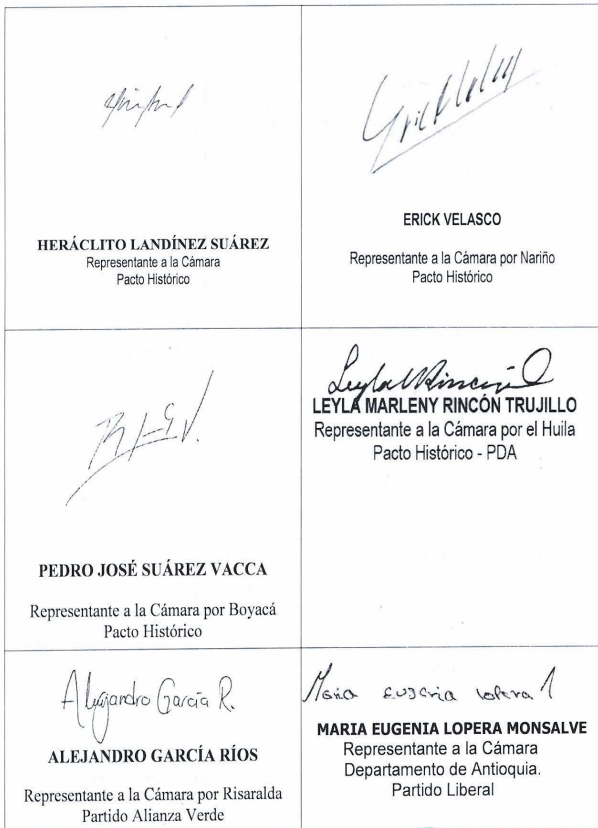 HERÁCLITO LANDÍNEZ SUÁREZ
Representante a la Cámara
Pacto Histórico
Erick Velasco
ERICK VELASCO
Representante a la Cámara por Nariño
Pacto Histórico
PEDRO JOSÉ SUÁREZ VACCA
Representante a la Cámara por Boyacá
Pacto Histórico
Leyla Rincón
LEYLA MARLENY RINCÓN TRUJILLO
Representante a la Cámara por el Huila
Pacto Histórico - PDA
Alejandro García R.
ALEJANDRO GARCÍA RÍOS
Representante a la Cámara por Risaralda
Partido Alianza Verde
Maria Eugenia Lopera
MARIA EUGENIA LOPERA MONSALVE
Representante a la Cámara
Departamento de Antioquia.
Partido Liberal